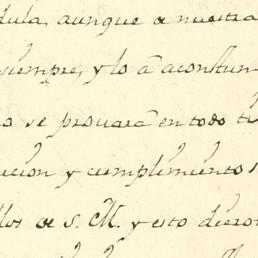 dula, aunque de nuestra
siempre, y lo ā acostum
o se provarā en todo ti
ucion y cumplimiento
llos de S. M. y esto dieron